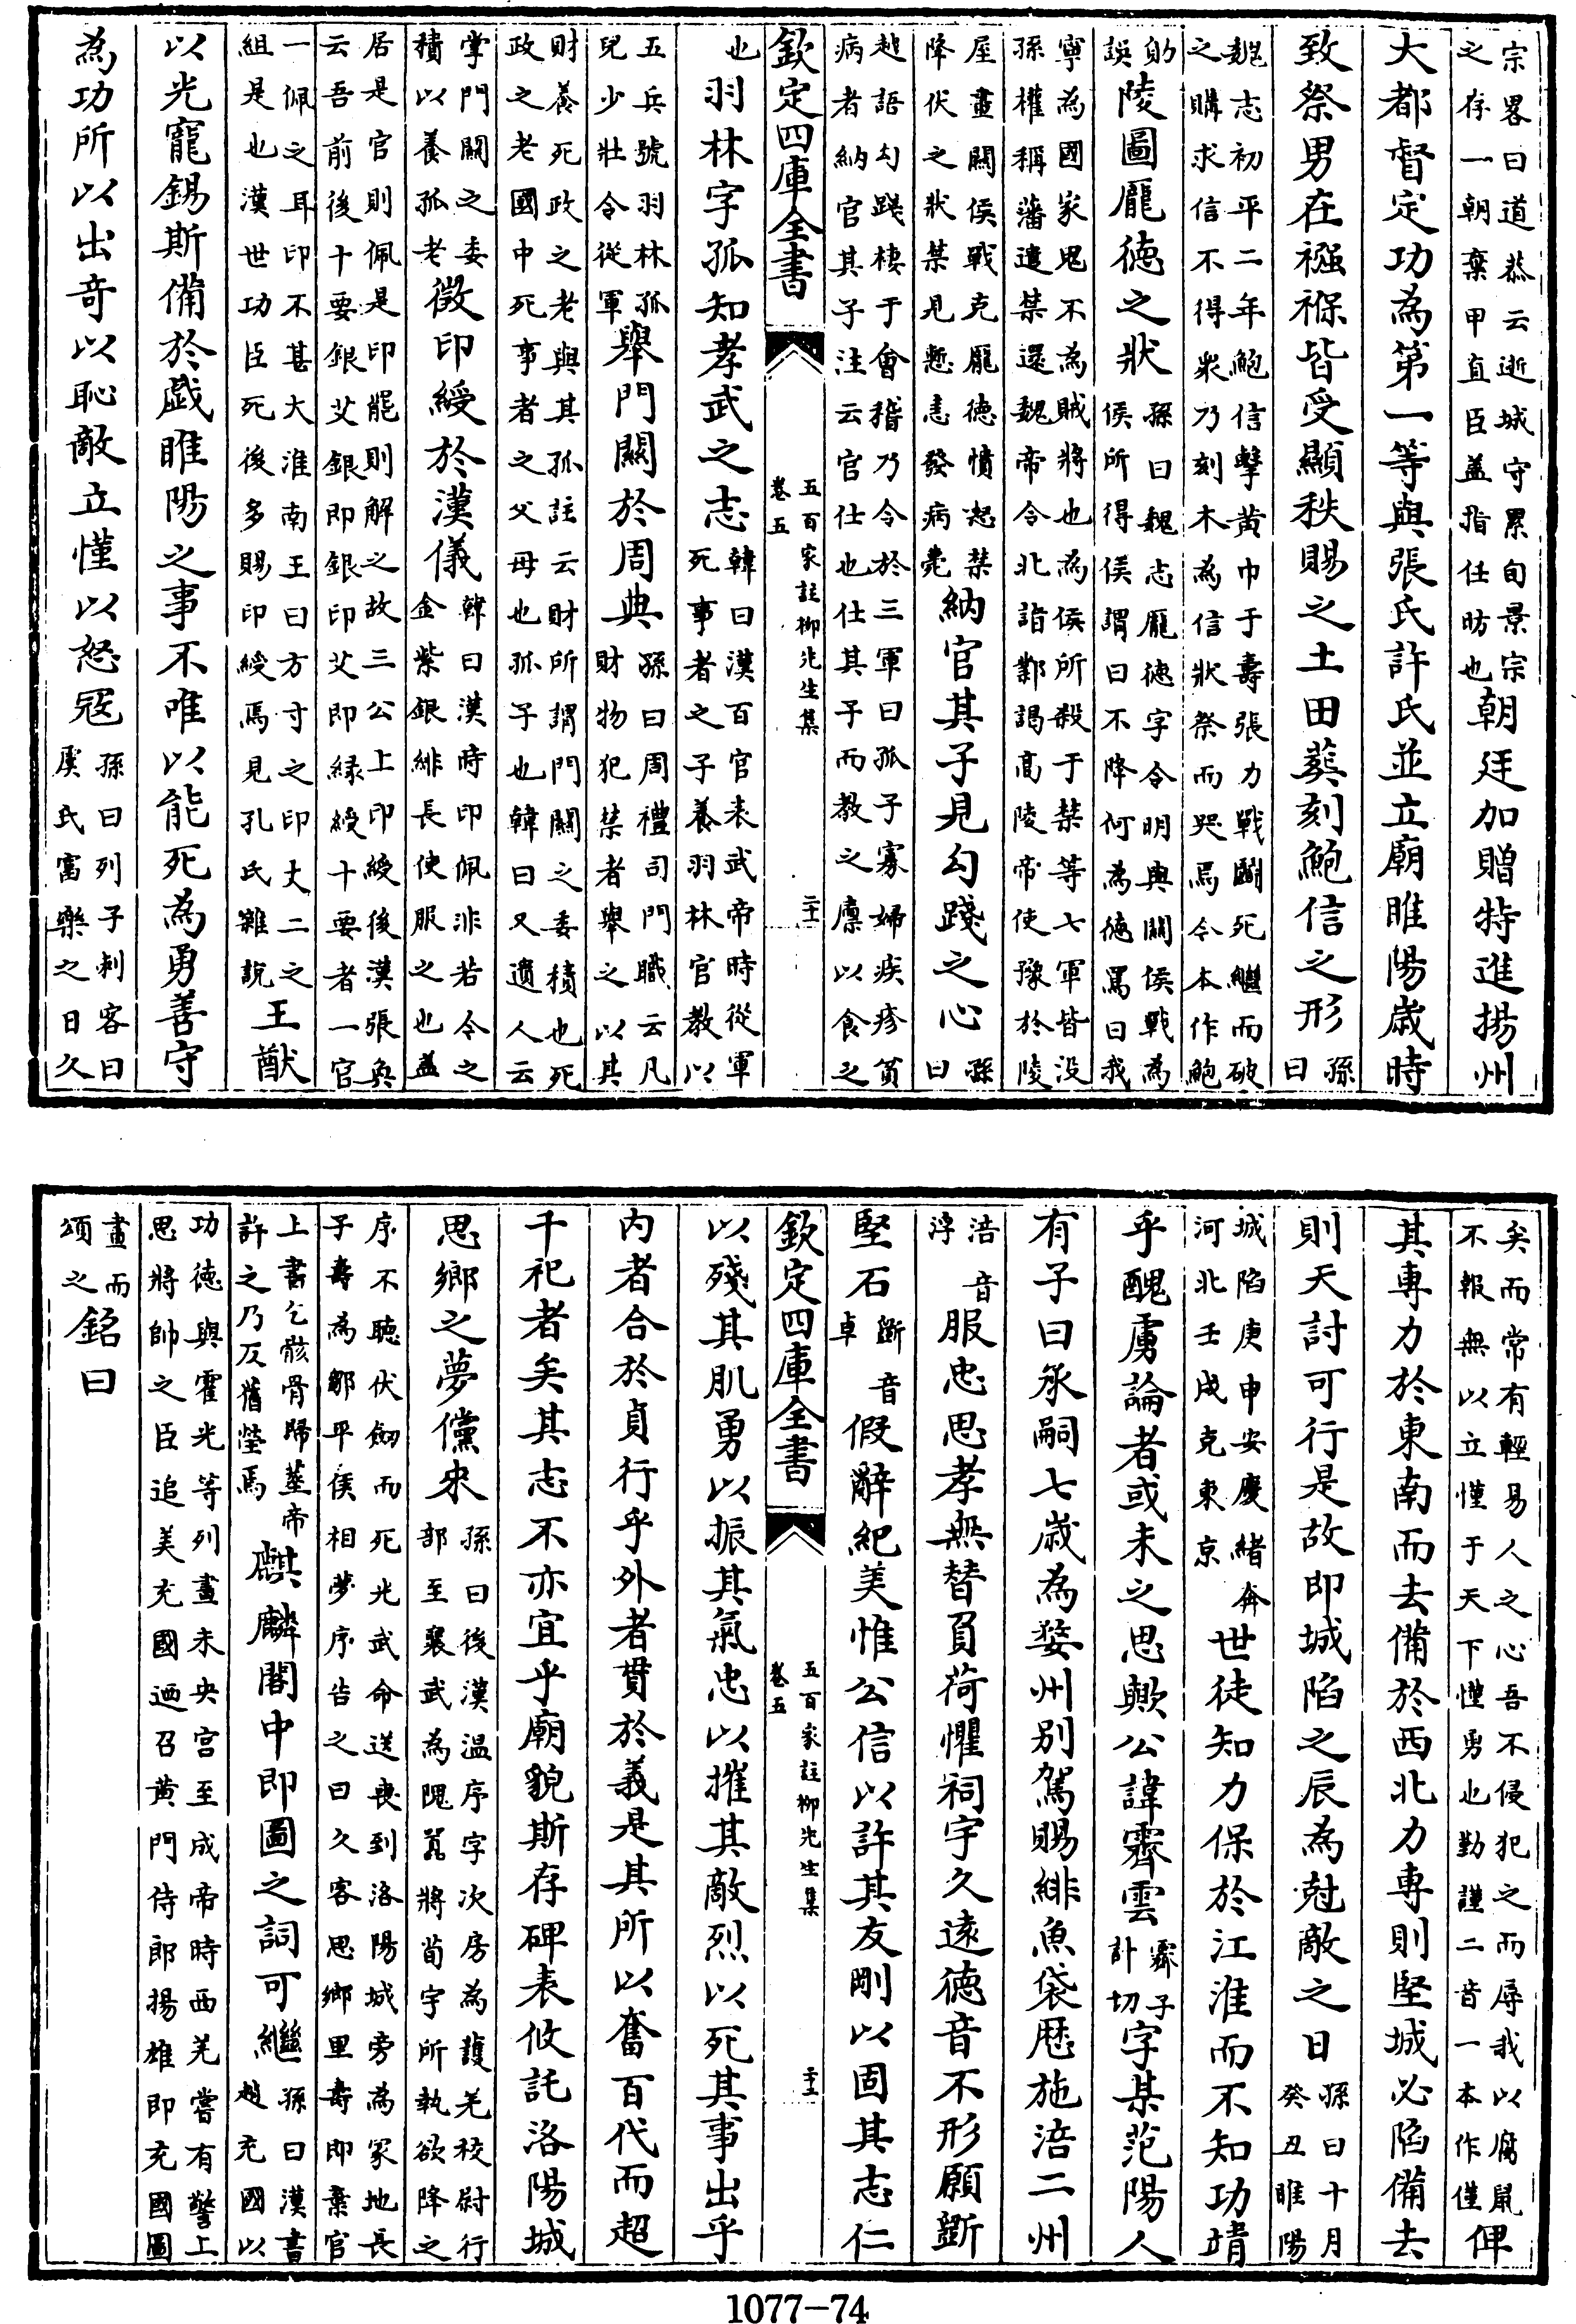 宗畧曰道恭云逝城守累旬景宗
之存一朝棄甲直臣盖指任昉也
朝廷加贈特進揚州
大都督定功為第一等與張氏許氏並立廟睢陽歲時
致祭男在襁褓皆受顯秩賜之土田葬刻鮑信之形
孫曰
魏志初平二年鮑信擊黄巾于壽張力戰鬭死繼而破
之購求信不得衆乃刻木為信狀祭而哭焉令本作鮑
勛
誤
陵圖龎徳之狀
孫曰魏志龎徳字令明與關侯戰為
侯所得侯謂曰不降何為徳罵曰我
寧為國家鬼不為賊將也為侯所殺于禁等七軍皆没
孫權稱藩遣禁還魏帝令北詣鄴謁髙陵帝使豫於陵
屋畫關侯戰克龎徳憤怒禁
降伏之狀禁見慙恚發病薨
納官其子見勾踐之心
孫曰
越語勾踐棲于會稽乃令於三軍曰孤子寡婦疾疹貧
病者納官其子注云官仕也仕其子而教之廪以食之
欽定四庫全書
五百家註柳先生集
卷五
二十一
也
羽林字孤知孝武之志
韓曰漢百官表武帝時從軍
死事者之子養羽林官教以
五兵號羽林孤
兒少壯令從軍
舉門闗於周典
孫曰周禮司門職云凡
財物犯禁者舉之以其
財養死政之老與其孤註云財所謂門闗之委積也死
政之老國中死事者之父母也孤子也韓曰又遺人云
掌門闗之委
積以養孤老
徵印綬於漢儀
韓曰漢時印佩非若今之
金紫銀緋長使服之也盖
居是官則佩是印罷則解之故三公上印綬後漢張奐
云吾前後十要銀艾銀即銀印艾即緑綬十要者一官
一佩之耳印不甚大淮南王曰方寸之印丈二之
組是也漢世功臣死後多賜印綬焉見孔氏雜說
王猷
以光寵錫斯備於戯睢陽之事不唯以能死為勇善守
為功所以出奇以恥敵立慬以怒冦
孫曰列子刺客曰
虞氏富樂之日久
矣而常有輕易人之心吾不侵犯之而辱我以腐鼠
不報無以立慬于天下慬勇也勤謹二音一本作僅
俾
其專力於東南而去備於西北力專則堅城必陷備去
則天討可行是故即城陷之辰為尅敵之日
孫曰十月
癸丑睢陽
城陷庚申安慶緒奔
河北壬戌克東京
世徒知力保於江淮而不知功靖
乎醜虜論者或未之思歟公諱霽雲
霽子
計切
字某范陽人
有子曰承嗣七歲為婺州别駕賜緋魚袋歴施涪二州
涪音
浮
服忠思孝無替負荷懼祠宇久遠徳音不形願斵
堅石
斵音
卓
假辭紀美惟公信以許其友剛以固其志仁
欽定四庫全書
五百家註柳先生集
卷五
二十二
以殘其肌勇以振其氣忠以摧其敵烈以死其事出乎
内者合於貞行乎外者貫於義是其所以奮百代而超
千祀者矣其志不亦宜乎廟貌斯存碑表攸託洛陽城
思鄉之夢儻來
孫曰後漢温序字次房為護羌校尉行
部至襄武為隗囂將荀宇所執欲降之
序不聽伏劔而死光武命送喪到洛陽城旁為冢地長
子壽為鄒平侯相夢序告之曰久客思鄉里壽即棄官
上書乞骸骨歸塟帝
許之乃反舊塋焉
麒麟閣中即圖之詞可繼
孫曰漢書
趙充國以
功徳與霍光等列畫未央宫至成帝時西羌嘗有警上
思將帥之臣追美充國迺召黄門侍郎揚雄即充國圖
畫而
頌之
銘曰
1077-74